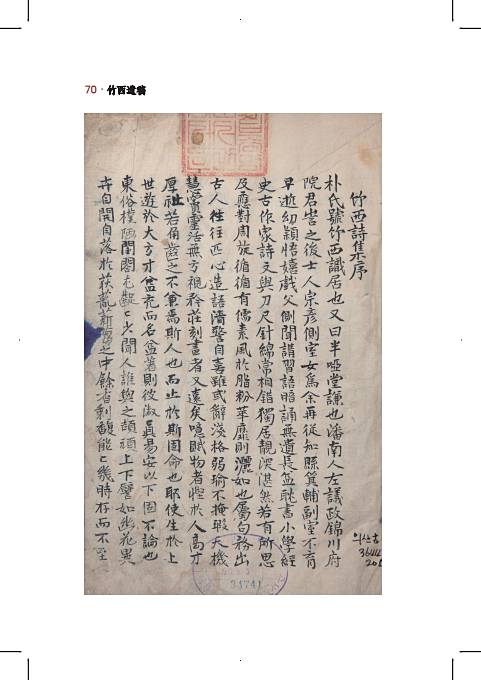 70 · 竹西遺稿
竹西詩集序
朴氏號竹西識居也又曰半啞堂謙也潘南人左議政錦川府
院君訔之後士人宗彦側室女爲余再從知縣箕輔副室不育
早逝幼穎悟嬉戲父側聞講習語暗誦無遺長益耽書小學經
史古作家詩文與刀尺針線常相錯獨居靚深湛然若有所思
及應對周旋循循有儒素風於脂粉華靡則灑如也屬句務出
古人往往匠心造語淸警自喜雖或解淺格弱瑜不掩瑕天機
慧竇靈活無方視矜莊刻畫者又遠矣噫賦物者慳於人高才
厚祉若角齒之不兼焉斯人也而止於斯固命也耶使生於上
世遊於大方才益充而名益著則彼淑眞易安以下固不論也
東俗樸陋閨閤尤齪齪少聞人誰與之頡頏上下譬如幽花異
卉自開自落於荻藋薪蒭之中餘香剩馥能能幾時存而不至
34741